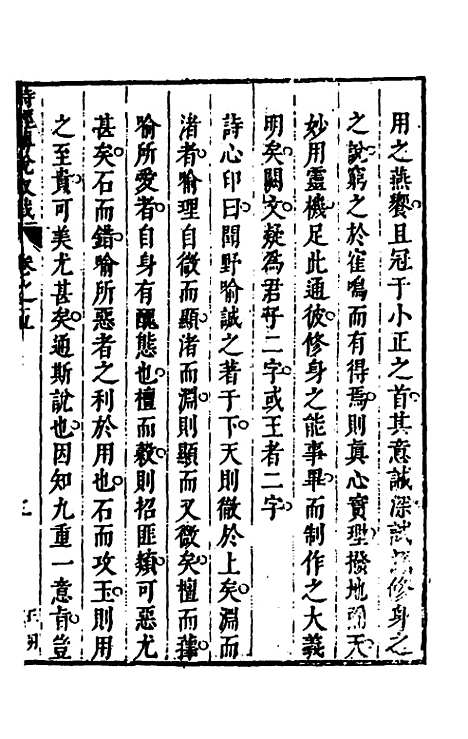 用之燕饗且冠于小正之首其意誠深試爲修身之
之說窮之於隺鳴而有得焉則眞心實理撥地彌天
妙用靈機足此通彼修身之能事畢而制作之大義
明矣闕文疑爲君子二字或王者二字
詩心印曰聞野喻誠之著于下天則徵於上矣淵而
渚者喻理自微而顯渚而淵則顯而又微矣檀而蘀
喻所愛者自身有醜態也檀而榖則招匪類可惡尤
甚矣石而錯喻所惡者之利於用也石而攻玉則用
之至貴可美尤甚矣通斯說也因知九重一意肯豈
詩經
卷之五
三